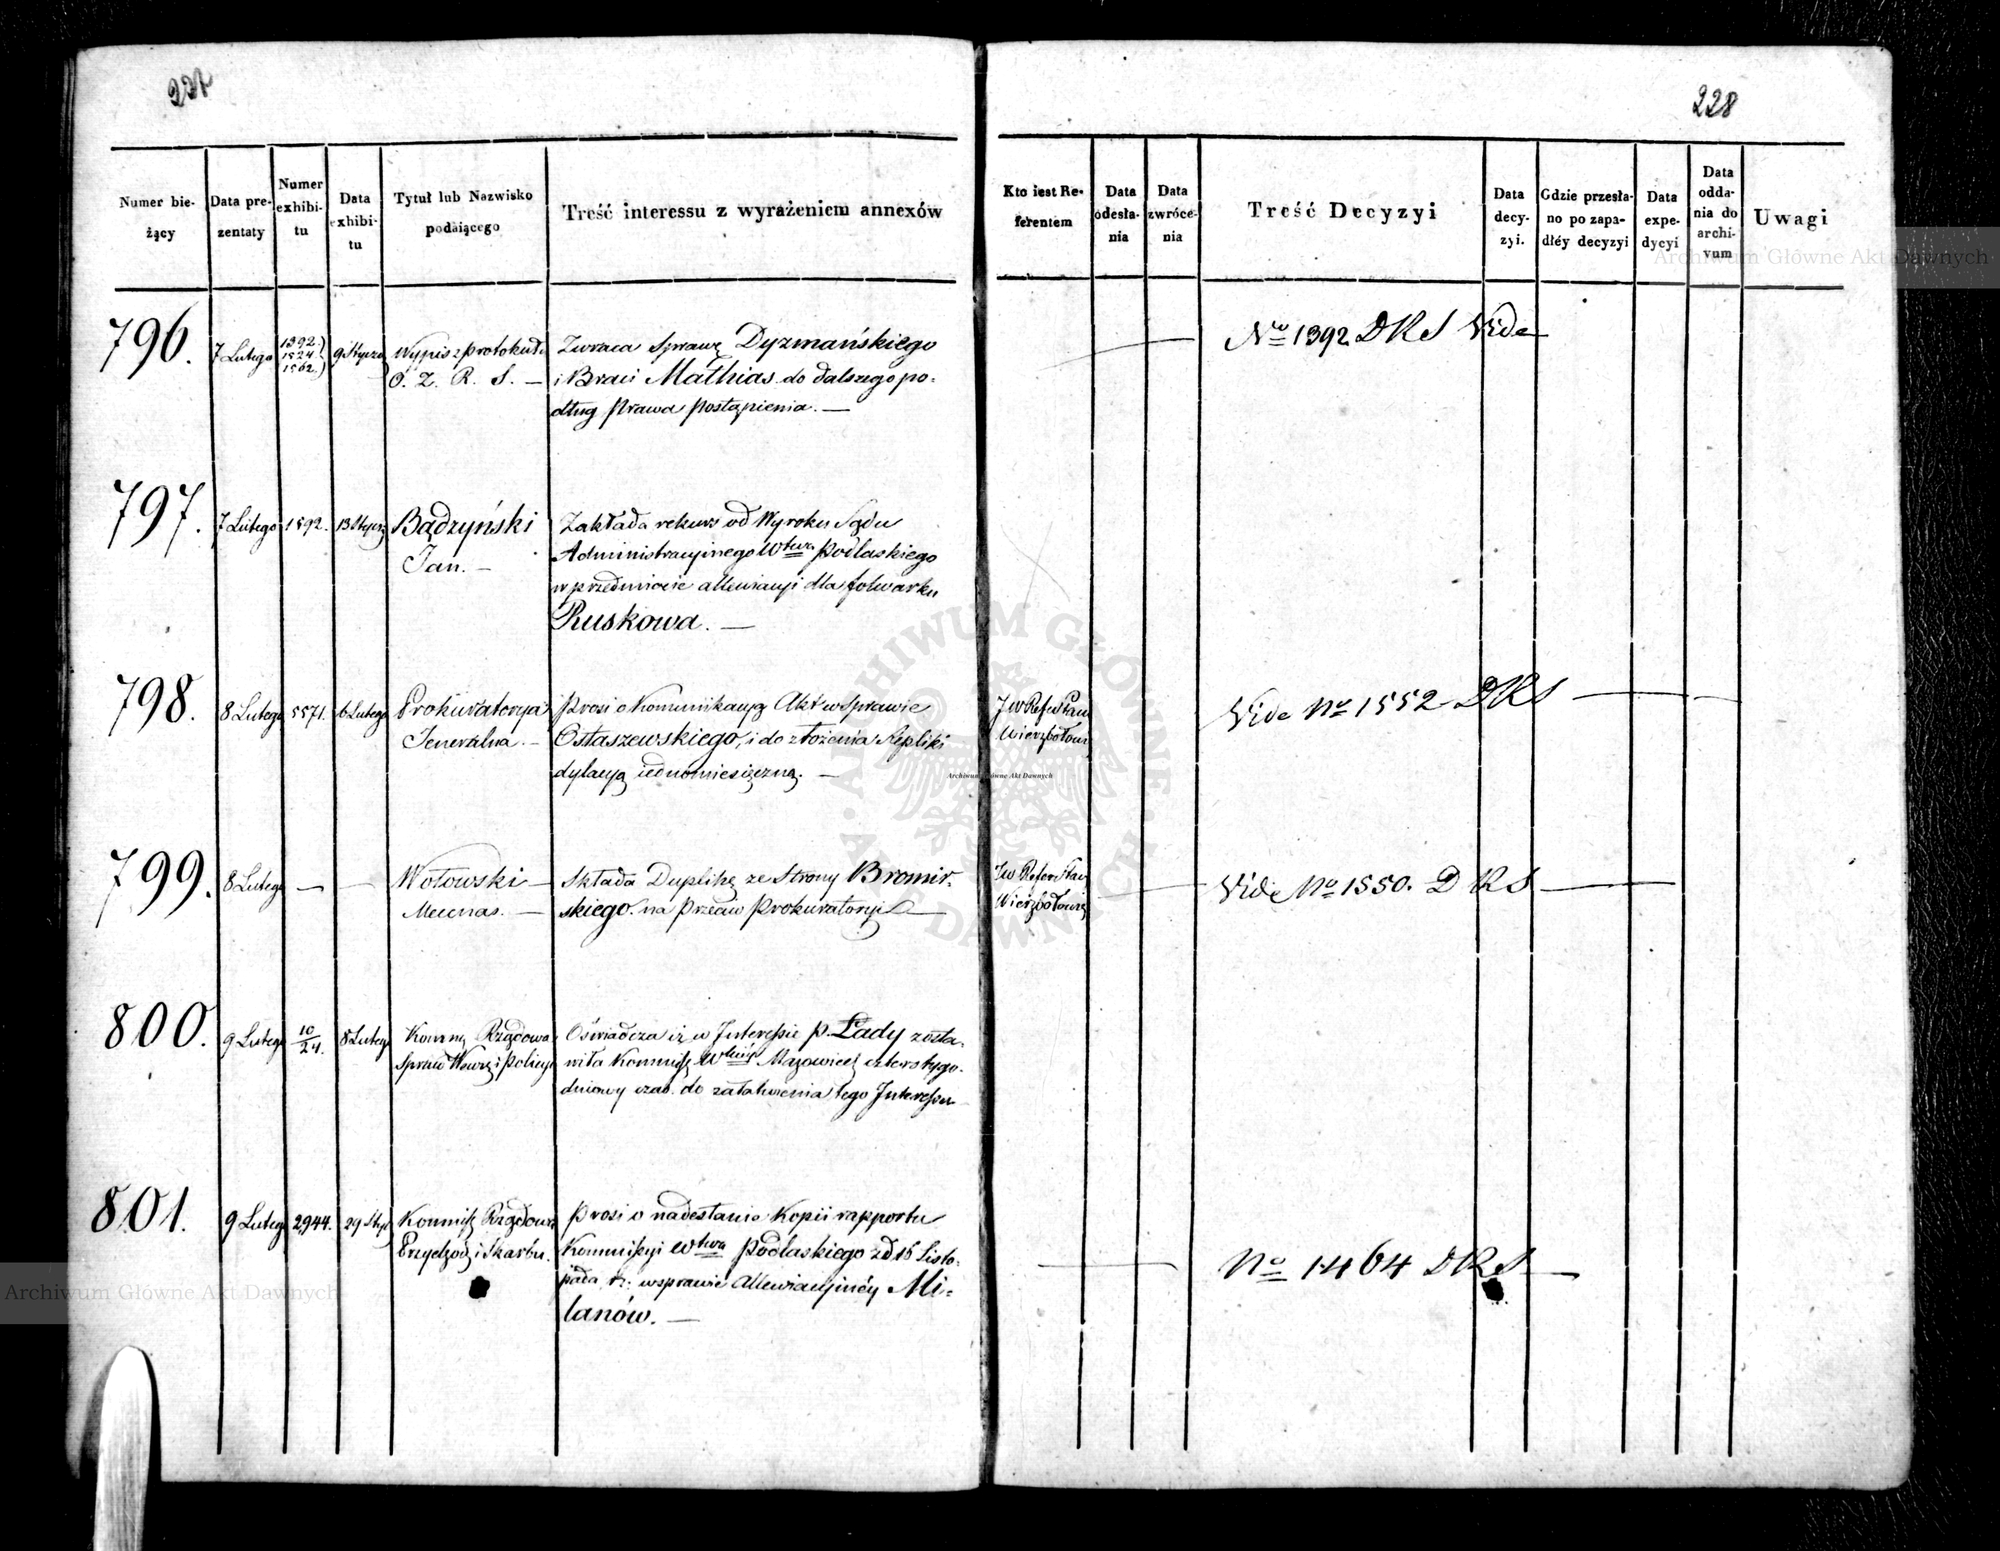 227
228
Numer bie-
żący
Data pre-
zentaty
Numer
exhibi-
tu
Data
exhibi-
tu
Tytuł lub Nazwisko
podaiącego
Treść interessu z wyrażeniem annexów
Kto iest Re-
ferentem
Data
odesła-
nia
Data
zwróce-
nia
Treść Decyzyi
Data
decy-
zyi.
Gdzie przesła-
no po zapa-
dłéy decyzyi
Data
expe-
dycyi
Data
odda-
nia do
archi-
vum
Uwagi
796.
7 Lutego
1392.)
1524.
1562.)
9 Stycz
Wypis z protokułu
O. Z. R. S. —
Zwraca Sprawę Dyzmańskiego
i Braci Mathias do dalszego po-
dług Prawa postąpienia. —
No 1392 DKS Vide
797.
7 Lutego
1592.
13 Stycz
Bądzyński
Jan. —
Zakłada rekurs od Wyroku Sądu
Administracyjnego Wtwa Podlaskiego
w przedmiocie allewiacyi dla folwarku
Ruskowa. —
798.
8 Lutego
5571.
6 Lutego
Prokuratorya
Jeneralna. —
Prosi o Kommunikacyą Akt w sprawie
Ostaszewskiego, i do złożenia Repliki
dylacyą iednomiesięczną. —
JW Refer Stanu
Wierzbołow
Vide No 1552 DKS
799.
8 Lutego
Wołowski —
Mecenas. —
Składa Duplikę ze Strony Bromir-
skiego na przeciw Prokuratoryi —
JW Refer Stan
Wierzbołowi
Vide No 1550. DKS
800.
9 Lutego
10/24.
8 Lutego
Kommis Rządowa
Spraw Wewn i Policyi
Oświadcza iż w Interessie P. Lady zosta-
wiła Kommiss Wtwa Mazowiec czterotygo-
dniowy czas do załatwienia tego Interessu
801.
9 Lutego
2944.
29 Stycz
Kommiss Rządowa
Przychodów i Skarbu.
Prosi o nadesłanie Kopii rapportu
Kommissyi Wtwa Podlaskiego z d 16 Listo-
pada r. w sprawie Allewiacyinéy Mi-
lanów. —
No 1464 DKS
Archiwum Główne Akt Dawnych
ARCHIWUM GŁÓWNE AKT DAWNYCH
Archiwum Główne Akt Dawnych
Archiwum Główne Akt Dawnych